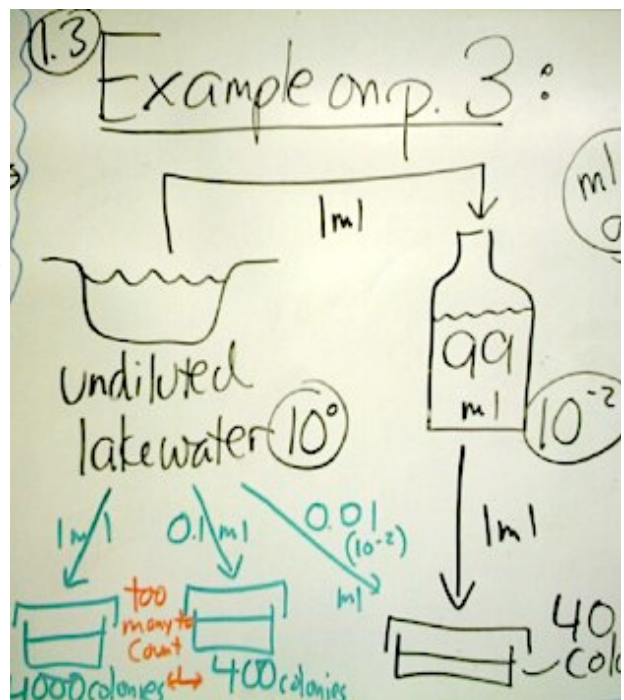 1.3
Example on p. 3 :
1 ml
ml
99
ml
undiluted
lakewater 10⁰
10⁻²
1 ml
0.1 ml
0.01
(10⁻²)
ml
1 ml
too
many to
count
4000 colonies ↔ 400 colonies
40
colo